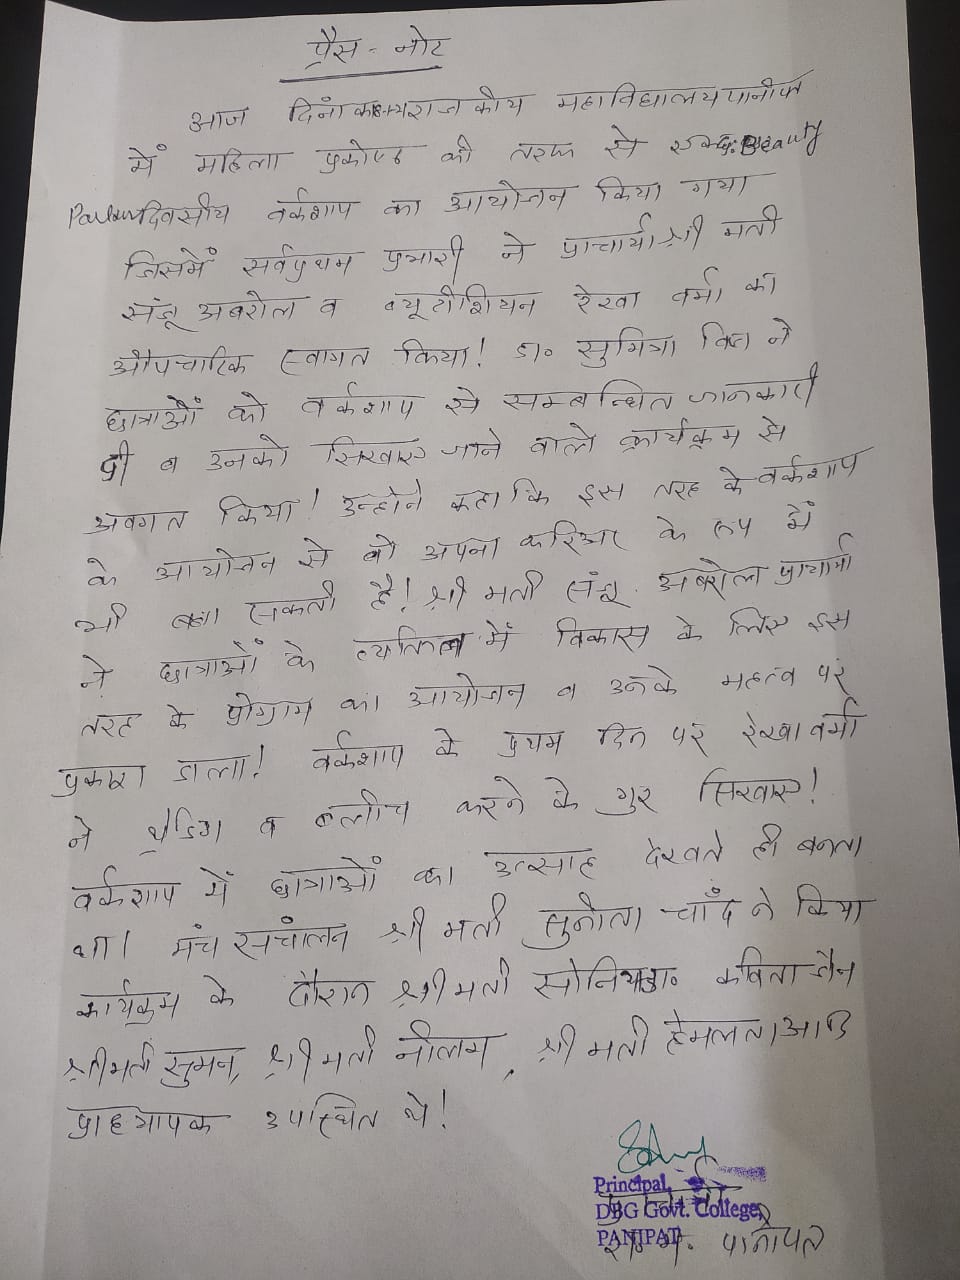 प्रैस - नोट
आज दिनांक राजकीय महाविद्यालय पानीपत
में महिला प्रकोष्ठ की तरफ से Beauty
Parlour दिवसीय वर्कशाप का आयोजन किया गया
जिसमें सर्वप्रथम प्रभारी ने प्राचार्या श्री मती
संजू अबरोल व ब्यूटीशियन रेखा वर्मा का
औपचारिक स्वागत किया! डा० सुमित्रा ने
छात्राओं को वर्कशाप से सम्बन्धित जानकारी
दी व उनको सिखाए जाने वाले कार्यक्रम से
अवगत किया! उन्होंने कहा कि इस तरह के वर्कशाप
के आयोजन से वो अपना करिअर के रूप में
भी बना सकती है! श्री मती संजू अबरोल प्राचार्या
ने छात्राओं के व्यक्तित्व में विकास के लिए इस
तरह के प्रोग्राम का आयोजन व उनके महत्व पर
प्रकाश डाला! वर्कशाप के प्रथम दिन पर रेखा वर्मा
ने थ्रेडिंग व ब्लीच करने के गुर सिखाए!
वर्कशाप में छात्राओं का उत्साह देखते ही बनता
था। मंच संचालन श्री मती सुनीता चाँद ने किया
कार्यक्रम के दौरान श्री मती सोनिया डा. कविता जैन
श्रीमती सुमन, श्री मती नीलम, श्री मती हेमलता आदि
प्राध्यापक उपस्थित थे!
Principal,
DBG Govt. College,
PANIPAT
रा. म. पानीपत